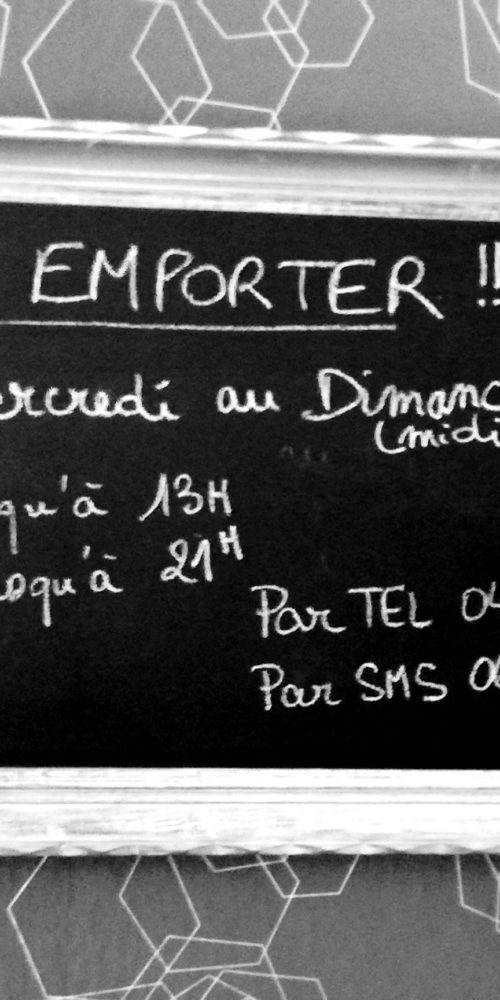 EMPORTER !!
ercredi au Dimanc
(midi
qu'à 13H
squ'à 21H
Par TEL 04
Par SMS 06